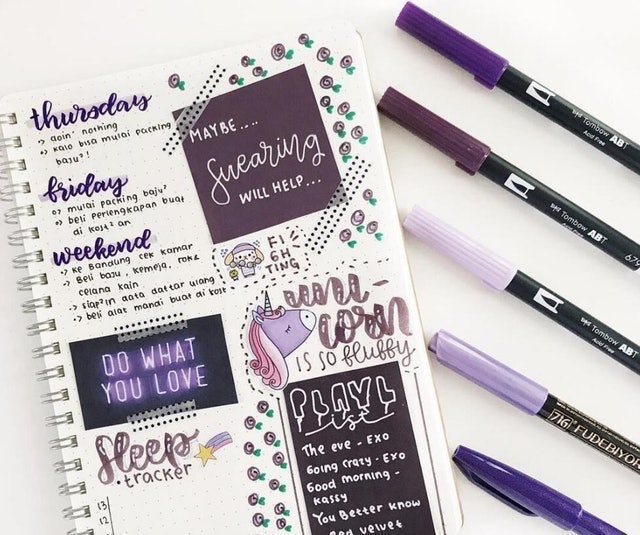 thursday
-> goin' nothing
-> kalo bisa mulai packing
baju?!
friday
-> mulai packing baju?
-> beli perlengkapan buat
di kost an
weekend
-> ke Bandung cek kamar
-> Beli baju, kemeja, rok2
celana kain
-> siap2in data daftar ulang
-> beli alat mandi buat di kost
DO WHAT
YOU LOVE
Sleep
tracker
13
12
MAYBE....
Swearing
WILL HELP...
FI
GH
TING
uni-
corn
IS SO fluffy
PLAYL
ist
The eve - EXO
Going crazy - EXO
Good morning -
Kassy
You Better know
Red velvet
Tombow ABT
Acid Free
Tombow ABT
Acid Free
679
Tombow ABT
Acid Free
Tombow ABT
Acid Free
[716] FUDEBIYO